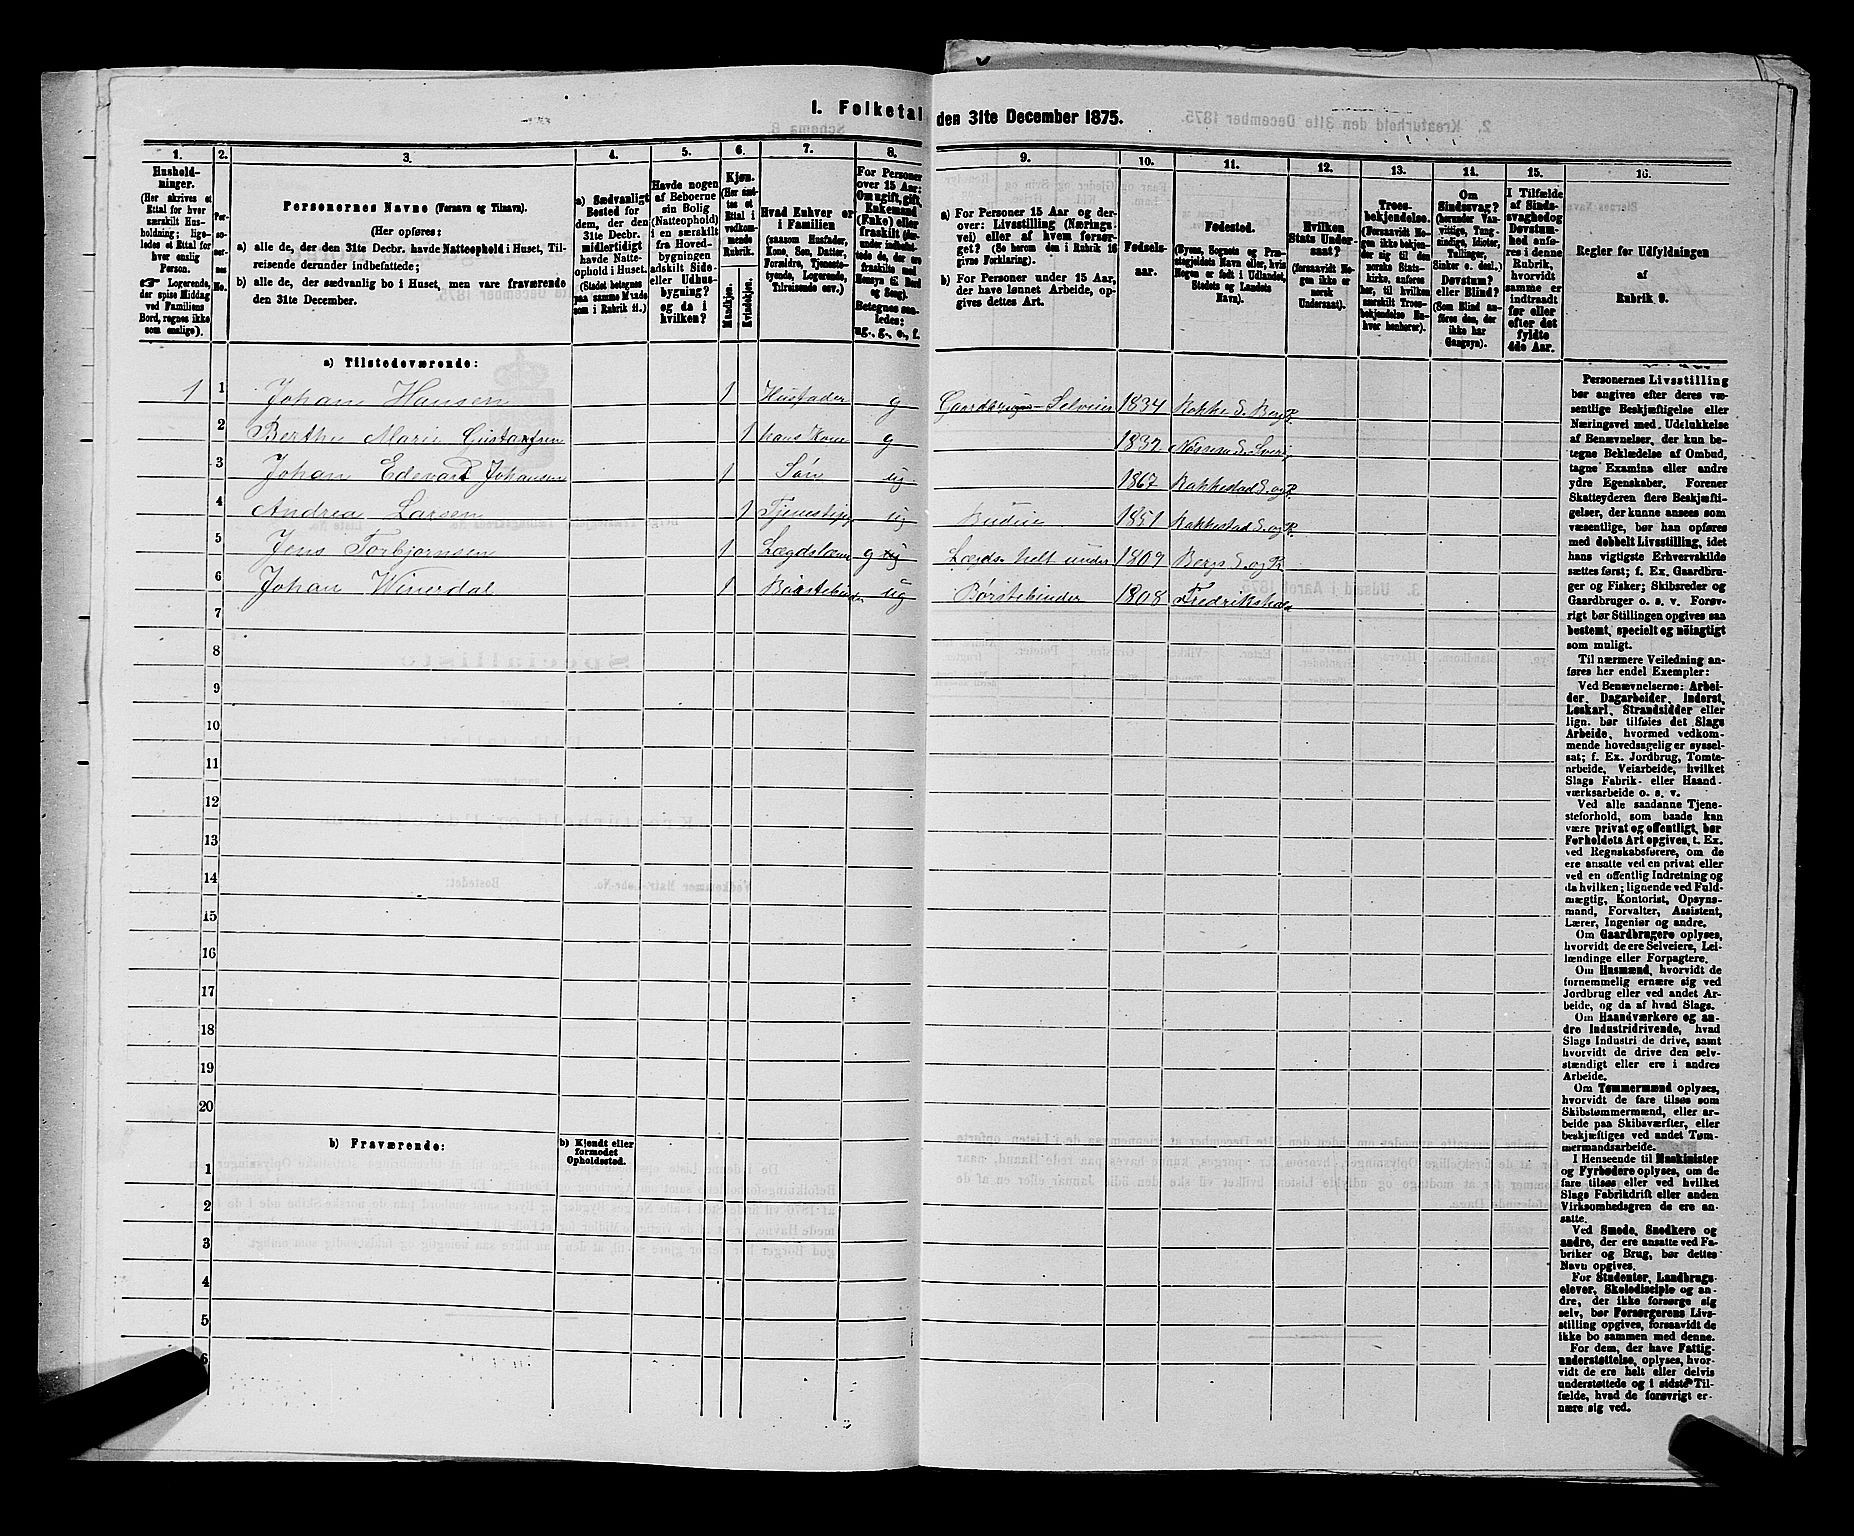 I. Folketal den 31te December 1875.
1. 2. 3. 4. 5. 6. 7. 8. 9. 10. 11. 12. 13. 14. 15. 16.
Hushold-
ninger.
(Her skrives et
Ettal for hver
særskilt Hus-
holdning; lige-
ledes et Ettal for
hver enslig
Person.
☞ Logerende,
der spise Middag
ved Familiens
Bord, regnes ikke
som enslige).
Per-
so-
ner-
nes
No.
Personernes Navne (Fornavn og Tilnavn).
(Her opføres:
a) alle de, der den 31te Decbr. havde Natteophold i Huset, Til-
reisende derunder indbefattede;
b) alle de, der sædvanlig bo i Huset, men vare fraværende
den 31te December.
a) Sædvanligt
Bosted for
dem, der den
31te Decbr.
midlertidigt
havde Natte-
ophold i Huset.
(Stedet betegnes
paa samme Maade
som i Rubrik 11.)
Havde nogen
af Beboerne
sin Bolig
(Natteophold)
i en særskilt
fra Hoved-
bygningen
adskilt Side-
eller Udhus-
bygning?
og da i
hvilken?
Kjøn.
(Her sæt-
tes et
Ettal i
vedkom-
mende
Rubrik.
Mandkjøn.
Kvindekjøn.
Hvad Enhver er
i Familien
(saasom Husfader,
Kone, Søn, Datter,
Forældre, Tjeneste-
tyende, Logerende,
Tilreisende osv.)
For Personer
over 15 Aar:
Om ugift, gift,
Enkemand
(Enke) eller
fraskilt (der-
under indbefat-
tede de, der ere
fraskilte med
Hensyn til Bord
og Seng).
Betegnes saa-
ledes:
ug., g., e., f.
a) For Personer 15 Aar og der-
over: Livsstilling (Nærings-
vei) eller af hvem forsør-
get? (Se herom den i Rubrik 16
givne Forklaring).
b) For Personer under 15 Aar,
der have lønnet Arbeide, op-
gives dettes Art.
Fødsels-
aar.
Fødested.
(Byens, Sognets og Præ-
stegjeldets Navn eller, hvis
Nogen er født i Udlandet,
Stedets og Landets
Navn).
Hvilken
Stats Under-
saat?
(forsaavidt No-
gen ikke er
norsk
Undersaat).
Troes-
bekjendelse.
(Forsaavidt No-
gen ikke bekjen-
der sig til den
norske Stats-
kirke, anføres
her, til hvilken
særskilt Troes-
bekjendelse En-
hver henhører).
Om
Sindssvag?
(herunder Van-
vittige, Tung-
sindige, Idioter,
Tullinger,
Sinker o. desl.)
Døvstum?
eller Blind?
(Som Blind an-
føres den, der
ikke har
Gangsyn).
I Tilfælde
af Sinds-
svaghed og
Døvstum-
hed anfø-
res i denne
Rubrik,
hvorvidt
samme er
indtraadt
før eller
efter det
fyldte
4de Aar.
Regler for Udfyldningen
af
Rubrik 9.
a) Tilstedeværende:
1 1 Johan Hansen 1 Husfader g Gaardbruger Selveier 1834 Rokke S. Berg P.
2 Berthe Marie Gustavsen 1 hans Kone g 1832
3 Johan Edevart Johansen 1 Søn ug 1867 Rakkestad S. og P.
4 Andrea Larsen 1 Tjenestepige ug Budeie 1851 Rakkestad S. og P.
5 Jens Torbjørnsen 1 Lægdslem g Lægds helt under 1809 Bergs S. og Pr
6 Johan Winerdal 1 Børstebinder ug Børstebinder 1808 Fredrikshald
7
8
9
10
11
12
13
14
15
16
17
18
19
20
b) Fraværende:
b) Kjendt eller
formodet
Opholdssted.
1
2
3
4
5
6
Personernes Livsstilling
bør angives efter deres væ-
sentlige Beskjæftigelse eller
Næringsvei med Udelukkelse
af Benævnelser, der kun be-
tegne Beklædelse af Ombud,
tagne Examina eller andre
ydre Egenskaber. Forener
Skatteyderen flere Beskjæfti-
gelser, der kunne ansees som
væsentlige, bør han opføres
med dobbelt Livsstilling, idet
hans vigtigste Erhvervskilde
sættes først; f. Ex. Gaardbru-
ger og Fisker; Skibsreder og
Gaardbruger o. s. v. Forøv-
rigt bør Stillingen opgives saa
bestemt, specielt og nøiagtigt
som muligt.
Til nærmere Veiledning an-
føres her endel Exempler:
Ved Benævnelserne: Arbei-
der, Dagarbeider, Inderst,
Løskarl, Strandsidder eller
lign. bør tilføies det Slags
Arbeide, hvormed vedkom-
mende hovedsagelig er syssel-
sat; f. Ex. Jordbrug, Tomte-
arbeide, Veiarbeide, hvilket
Slags Fabrik- eller Haand-
værksarbeide o. s. v.
Ved alle saadanne Tjene-
steforhold, som baade kan
være privat og offentligt, bør
Forholdets Art opgives, t. Ex.
ved Regnskabsførere, om de
ere ansatte ved en privat eller
ved en offentlig Indretning og
da hvilken; lignende ved Fuld-
mægtig, Kontorist, Opsyns-
mand, Forvalter, Assistent,
Lærer, Ingeniør og andre.
Om Gaardbrugere oplyses,
hvorvidt de ere Selveiere, Lei-
lændinge eller Forpagtere.
Om Husmænd, hvorvidt de
fornemmelig ernære sig ved
Jordbrug eller ved andet Ar-
beide, og da af hvad Slags.
Om Haandværkere og an-
dre Industridrivende, hvad
Slags Industri de drive, samt
hvorvidt de drive den selv-
stændigt eller ere i andres
Arbeide.
Om Tømmermænd oplyses,
hvorvidt de fare tilsøs som
Skibstømmermænd, eller ar-
beide paa Skibsværfter, eller
beskjæftiges ved andet Tøm-
mermandsarbeide.
I Henseende til Maskinister
og Fyrbødere oplyses, om de
fare tilsøs eller ved hvilket
Slags Fabrikdrift eller anden
Virksomhedsgren de ere an-
satte.
Ved Smede, Snedkere og
andre, der ere ansatte ved Fa-
briker og Brug, bør dettes
Navn opgives.
For Studenter, Landbrugs-
elever, Skoledisciple og an-
dre, der ikke forsørge sig
selv, bør Forsørgerens Livs-
stilling opgives, forsaavidt de
ikke bo sammen med denne.
For dem, der have Fattig-
understøttelse, oplyses, hvor-
vidt de ere helt eller delvis
understøttede og i sidste Til-
fælde, hvad de forøvrigt er-
nære sig ved.